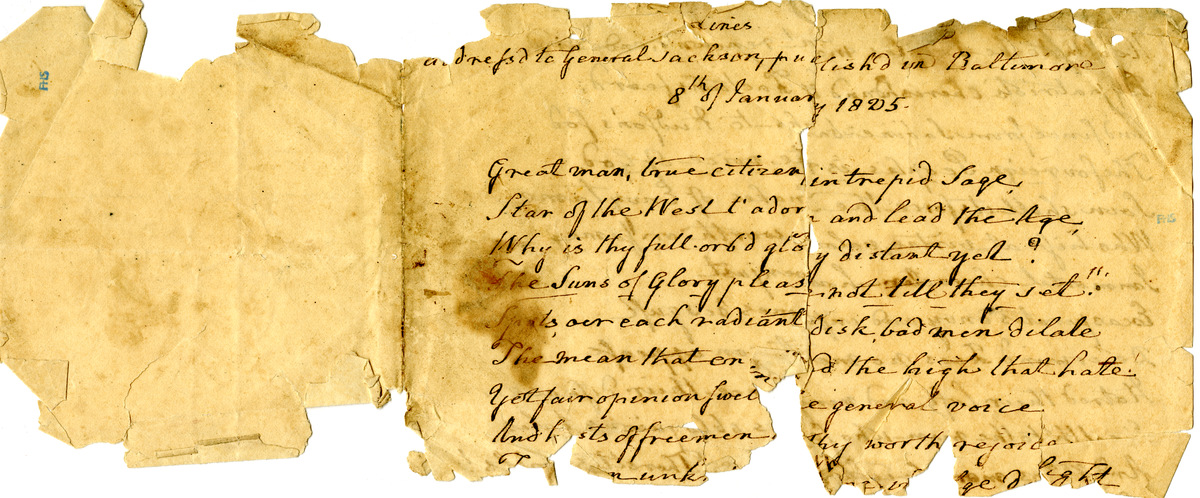 Lines
addressd to General Jackson, publishd in Baltimore
8th of January 1825.
Great man, true citizen, intrepid Sage,
Star of the West t'adorn and lead the Age,
Why is thy full-orb'd glory distant yet?
The Suns of Glory please not till they set."
Spots, oer each radiant disk, bad men dilate
The mean that en the high that hate!
Yet fair opinion swel e general voice
And h sts of freemen thy worth rejoice
unk ge d light
FHS
FHS